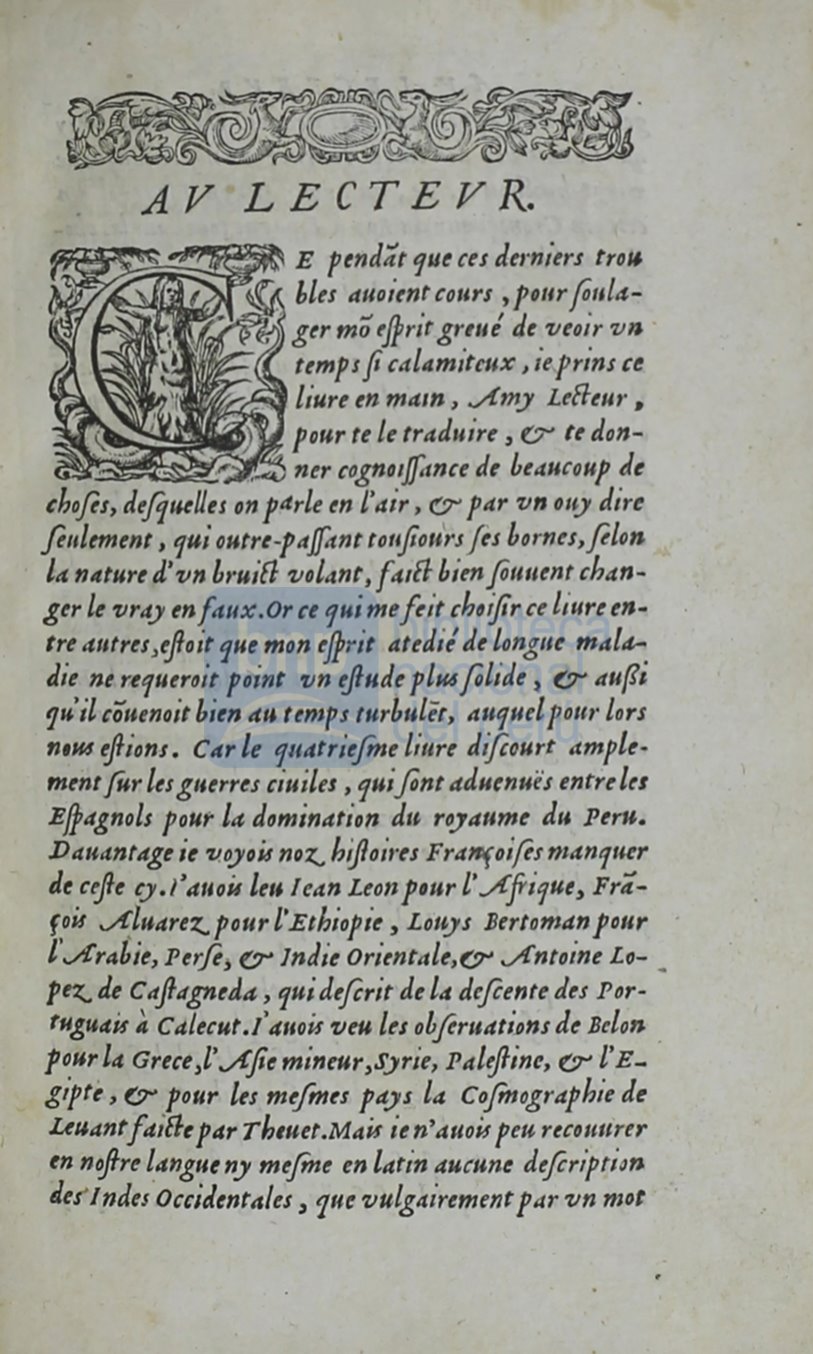 AV LECTEVR.
CE pendãt que ces derniers trou
bles auoient cours, pour ſoula-
ger mõ eſprit greué de veoir vn
temps ſi calamiteux, ie prins ce
liure en main, Amy Lecteur,
pour te le traduire, & te don-
ner cognoiſſance de beaucoup de
choſes, deſquelles on parle en l'air, & par vn ouy dire
ſeulement, qui outre-paſſant touſiours ſes bornes, ſelon
la nature d'vn bruict volant, faict bien ſouuent chan-
ger le vray en faux. Or ce qui me feit choiſir ce liure en-
tre autres, eſtoit que mon eſprit atedié de longue mala-
die ne requeroit point vn eſtude plus ſolide, & außi
qu'il cõuenoit bien au temps turbulẽt, auquel pour lors
nous eſtions. Car le quatrieſme liure diſcourt ample-
ment ſur les guerres ciuiles, qui ſont aduenuës entre les
Eſpagnols pour la domination du royaume du Peru.
Dauantage ie voyois noz hiſtoires Françoiſes manquer
de ceſte cy. I'auois leu Iean Leon pour l'Afrique, Frã-
çois Aluarez pour l'Ethiopie, Louys Bertoman pour
l'Arabie, Perſe, & Indie Orientale, & Antoine Lo-
pez de Caſtagneda, qui deſcrit de la deſcente des Por-
tuguais à Calecut. I'auois veu les obſeruations de Belon
pour la Grece, l'Aſie mineur, Syrie, Paleſtine, & l'E-
gipte, & pour les meſmes pays la Coſmographie de
Leuant faicte par Theuet. Mais ie n'auois peu recouurer
en noſtre langue ny meſme en latin aucune deſcription
des Indes Occidentales, que vulgairement par vn mot